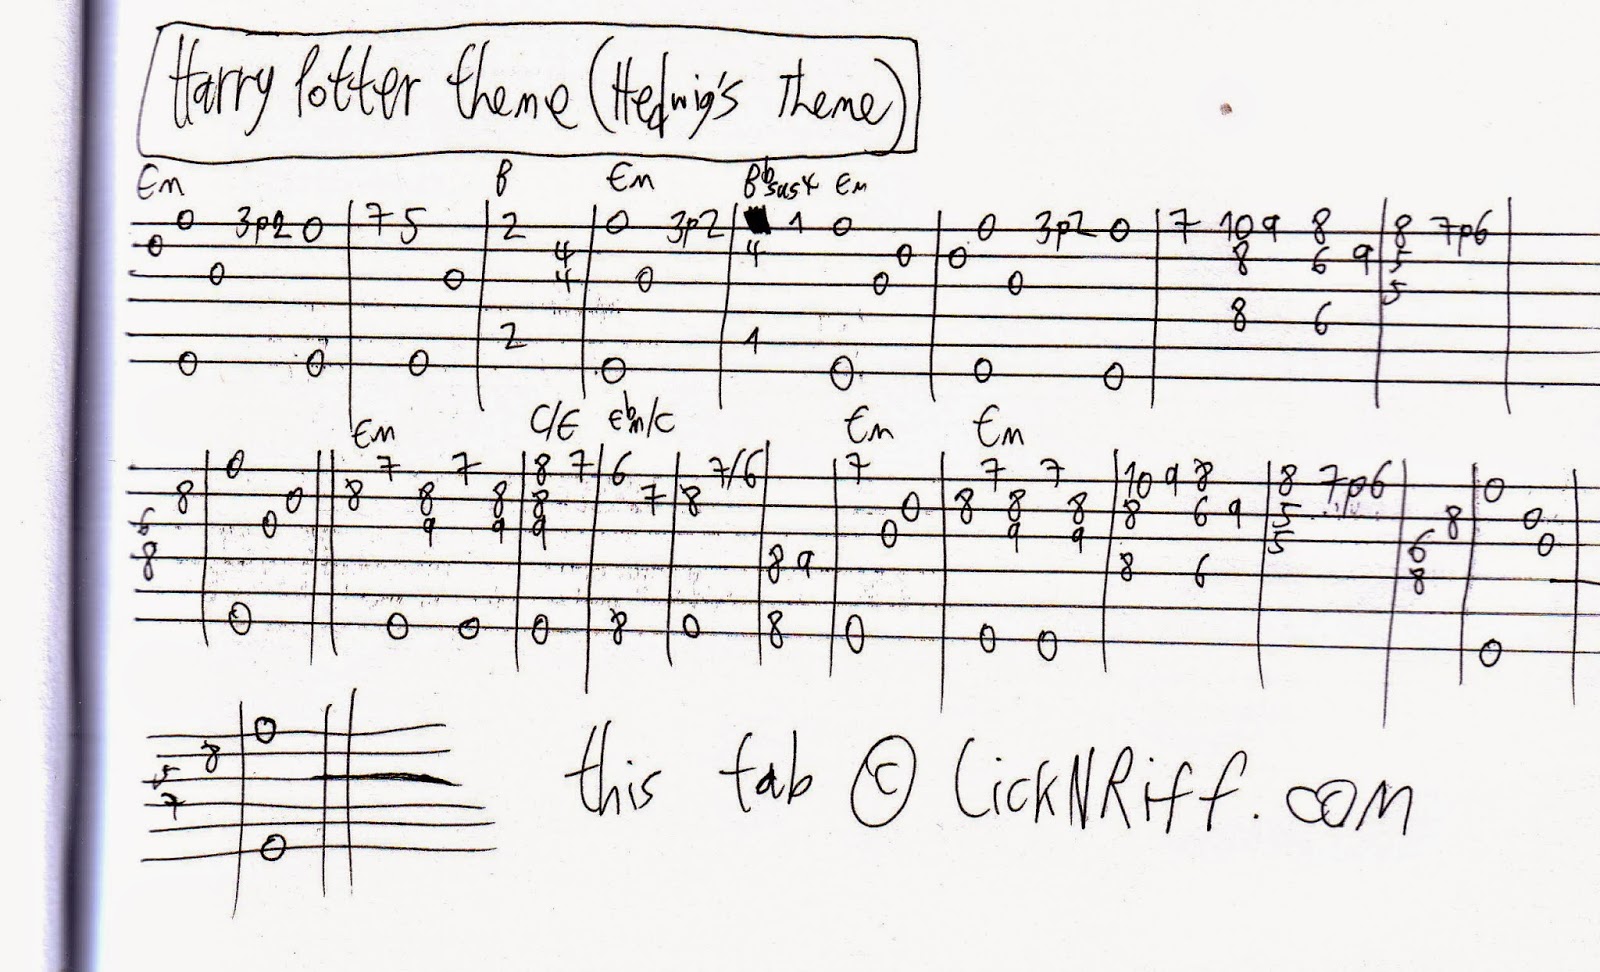 Harry Potter theme (Hedwig's Theme)
Em B Em B♭sus4 Em
0 3p2 0 7 5 2 0 3p2 1 0 0 3p2 0 7 10 9 8 8 7p6
0 4 4 0 0 8 6 9 5
0 0 4 0 0 0 5
8 6
2 1
0 0 0 0 0 0 0
Em C/E E♭m/C Em Em
0 7 7 8 7 6 7/6 7 7 7 10 9 8 8 7p6 0
8 0 8 8 8 8 7 8 0 8 8 8 8 6 9 5 8 0
6 0 9 9 9 0 9 9 5 6 0
8 8 9 8 6 8
0 0 0 0 8 0 8 0 0 0 0
0
8
5
7
0
this tab © LickNRiff.com